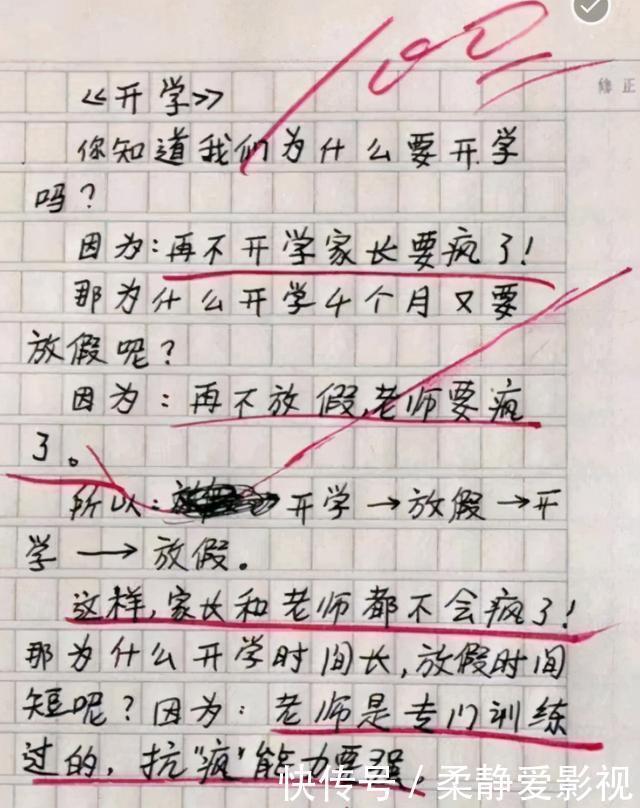 100
修正
《开学》
你知道我们为什么要开学
吗？
因为：再不开学家长要疯了！
那为什么开学4个月又要
放假呢？
因为：再不放假，老师要疯
了。
所以：开学→放假→开
学→放假。
这样，家长和老师都不会疯了！
那为什么开学时间长，放假时间
短呢？因为：老师是专门训练
过的，抗"疯"能力要强。
快传号/柔静爱影视